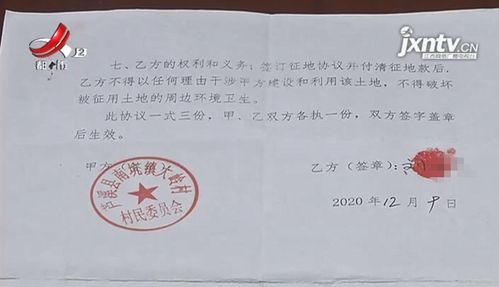 2
jxntv.CN
七、乙方的权利和义务:签订征地协议并付清征地款后,
乙方不得以任何理由干涉甲方建设和利用该土地,不得破坏
被征用土地的周边环境卫生。
此协议一式三份,甲、乙双方各执一份,双方签字盖章
后生效。
甲方(
乙方(签章):刘
芦溪县南坑镇大岭村
村民委员会
2020 年 12 月 9 日